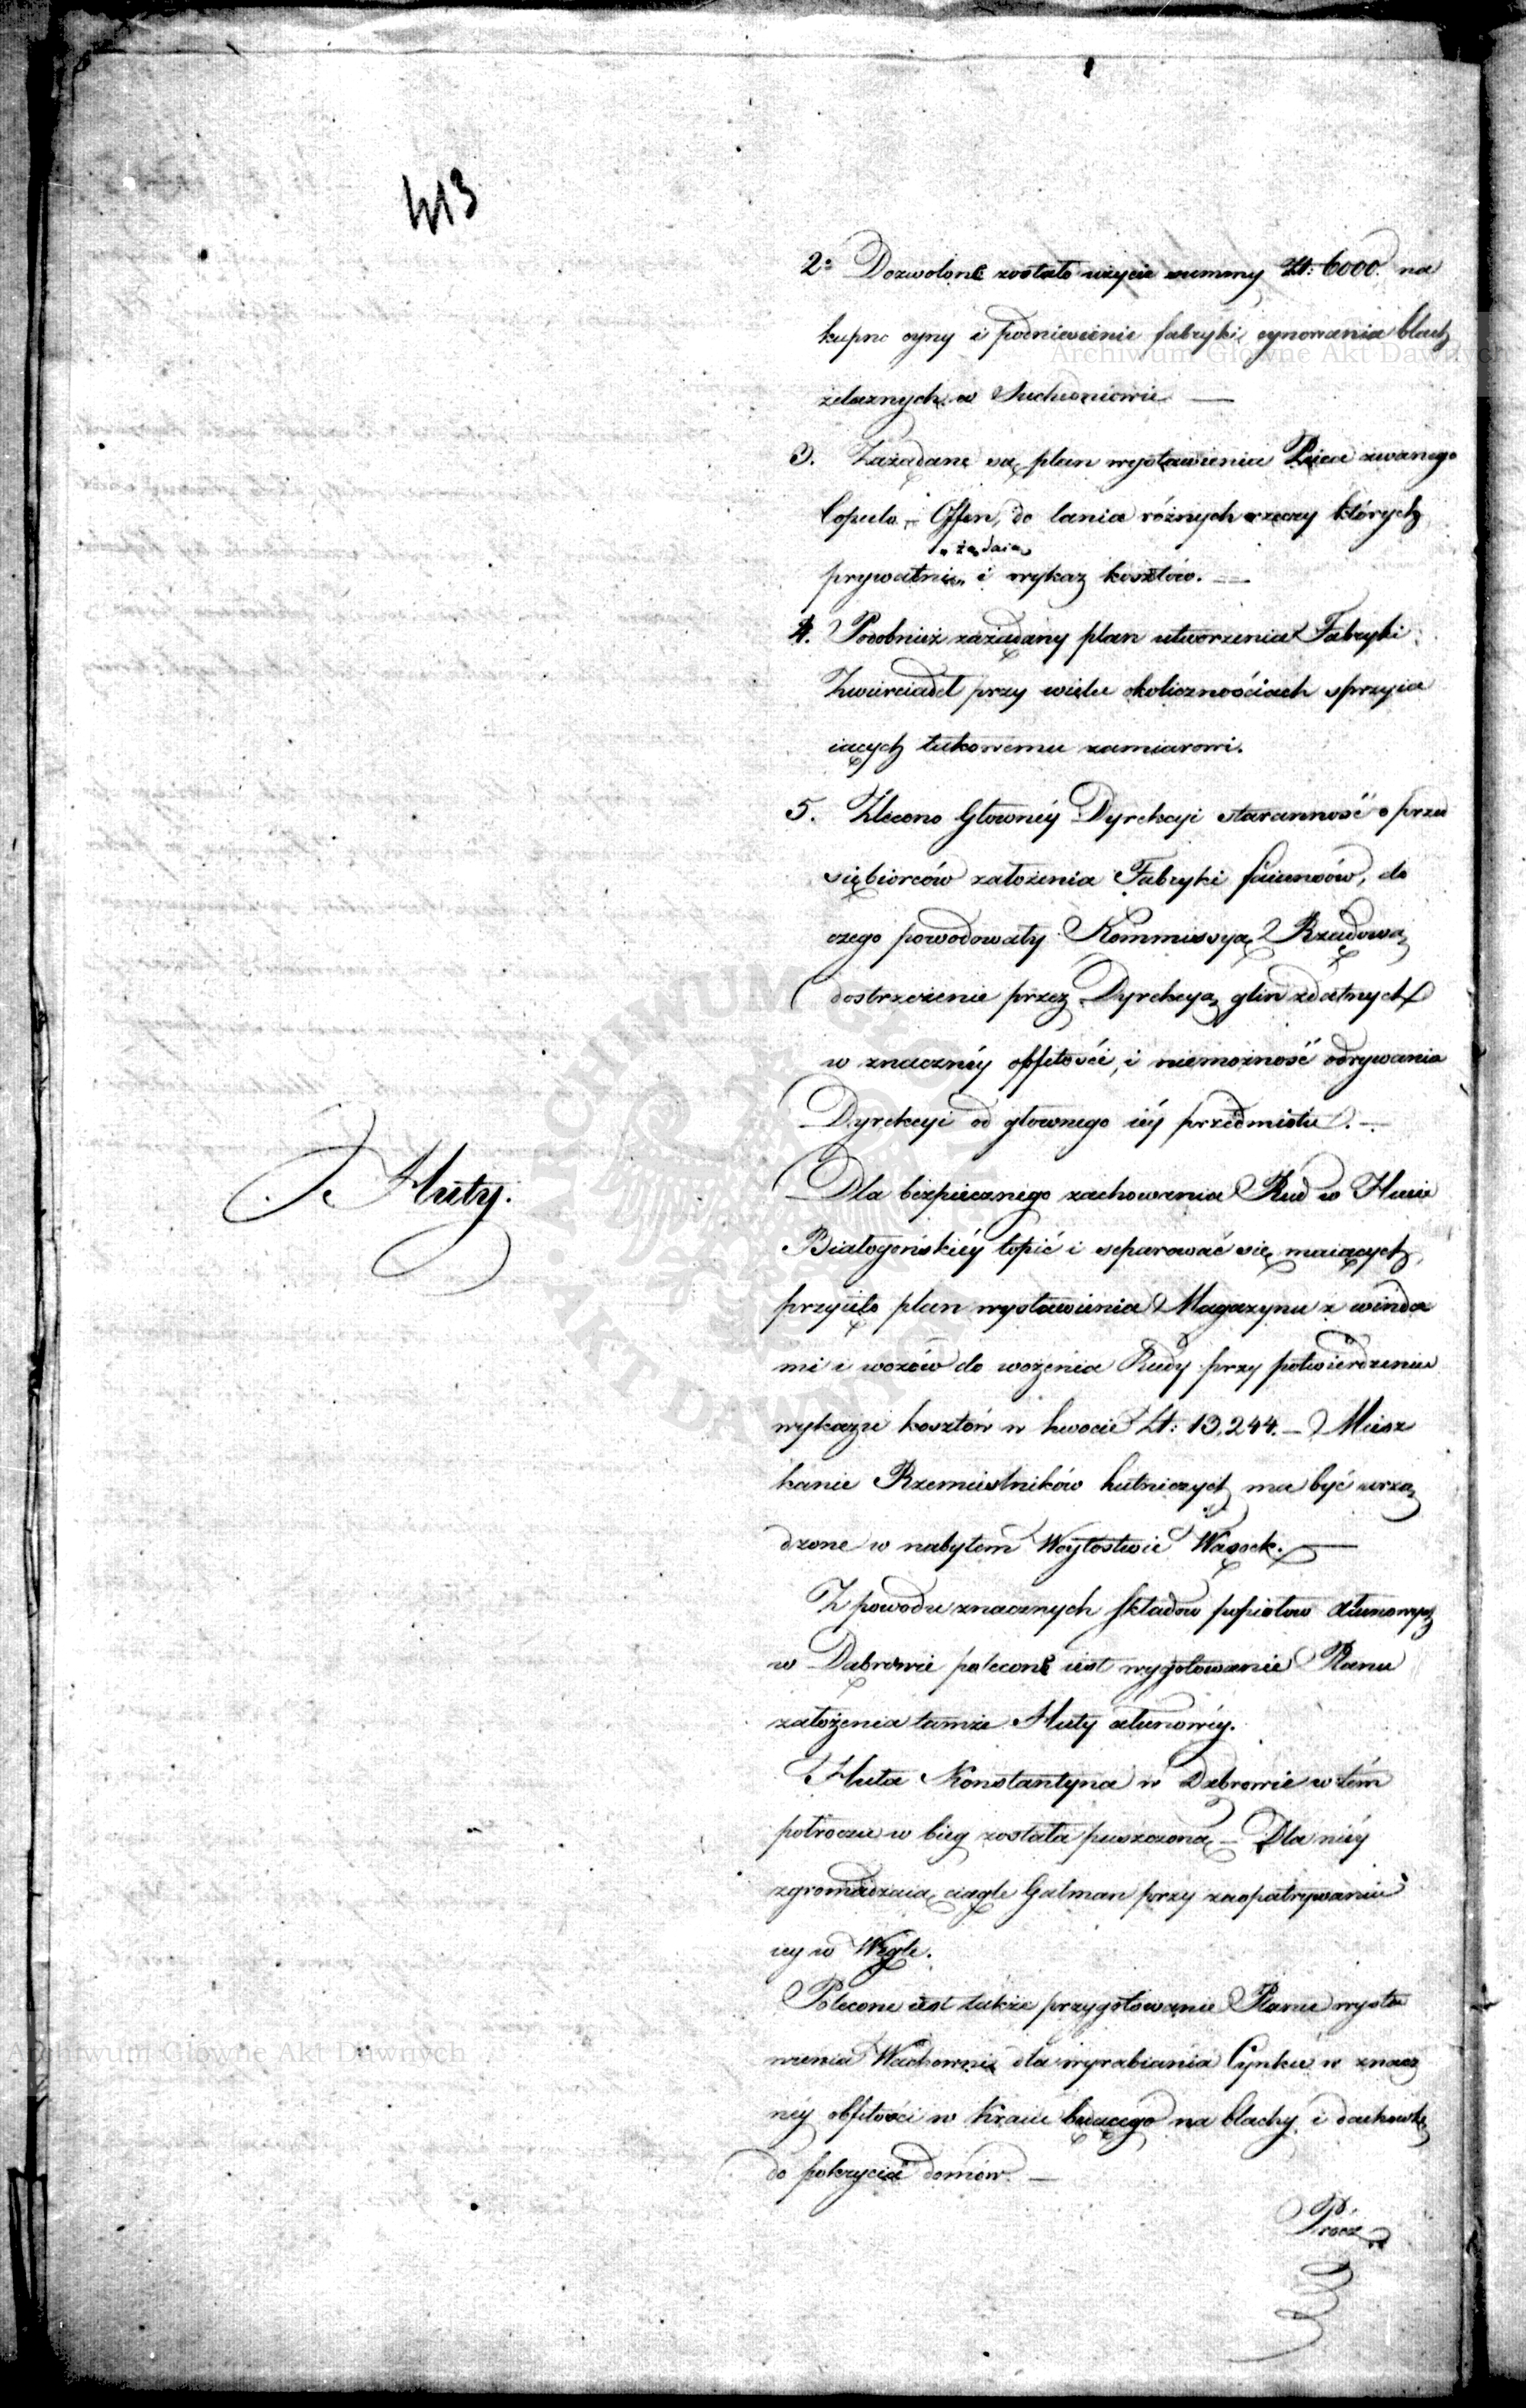 413
2° Dozwolone zostało użycie summy Zł: 6000. na
kupno cyny i podniesienie fabryki cynowania blach
żelaznych w Suchedniowie —
3. Zażądane są plan wystawienia Pieca zwanego
Copulo-Offen, do lania różnych rzeczy których
„żądaią
prywatni„ i wykaz kosztów. —
4. Podobnież zażądany plan utworzenia Fabryki
Zwierciadeł przy wielu okolicznościach sprzyia
iących takowemu zamiarowi.
5. Zlecono Głowney Dyrekcyi staranność o przed
siębiorców założenia Fabryki faiansów, do
czego powodowały Kommissyą Rządową
dostrzeżenie przez Dyrekcyą glin zdatnych
w znaczney obfitości, i niemożność odrywania
Dyrekcyi od głownego iéy przedmiotu. —
Huty.
Dla bezpiecznego zachowania Rud w Hucie
Białogońskiéy topić i separować się maiących,
przyięto plan wystawienia Magazynu z winda
mi i wozów do wożenia Rudy przy potwierdzeniu
wykazu kosztów w kwocie Zł: 13,244. — Miesz
kanie Rzemieślników hutniczych ma być urzą
dzone w nabytem Woytostwie Wąsosk. —
Z powodu znacznych składow popiołow ałunowych
w Dąbrowie polecone iest wygotowanie Planu
założenia tamże Huty ałunowéy.
Huta Konstantyna w Dąbrowie w tém
połroczu w bieg została puszczoną — Dla niéy
zgromadzaią ciągle Galman przy zaopatrywaniu
iey w Węgle.
Polecone iest także przygotowanie Planu wysta
wienia dla wyrabiania Cynku w znacz
néy obfitości w Kraiu będącego na blachy i dachowkę
do pokrycia domów. —
Prócz
Archiwum Główne Akt Dawnych
Archiwum Główne Akt Dawnych
ARCHIWUM GŁÓWNE AKT DAWNYCH